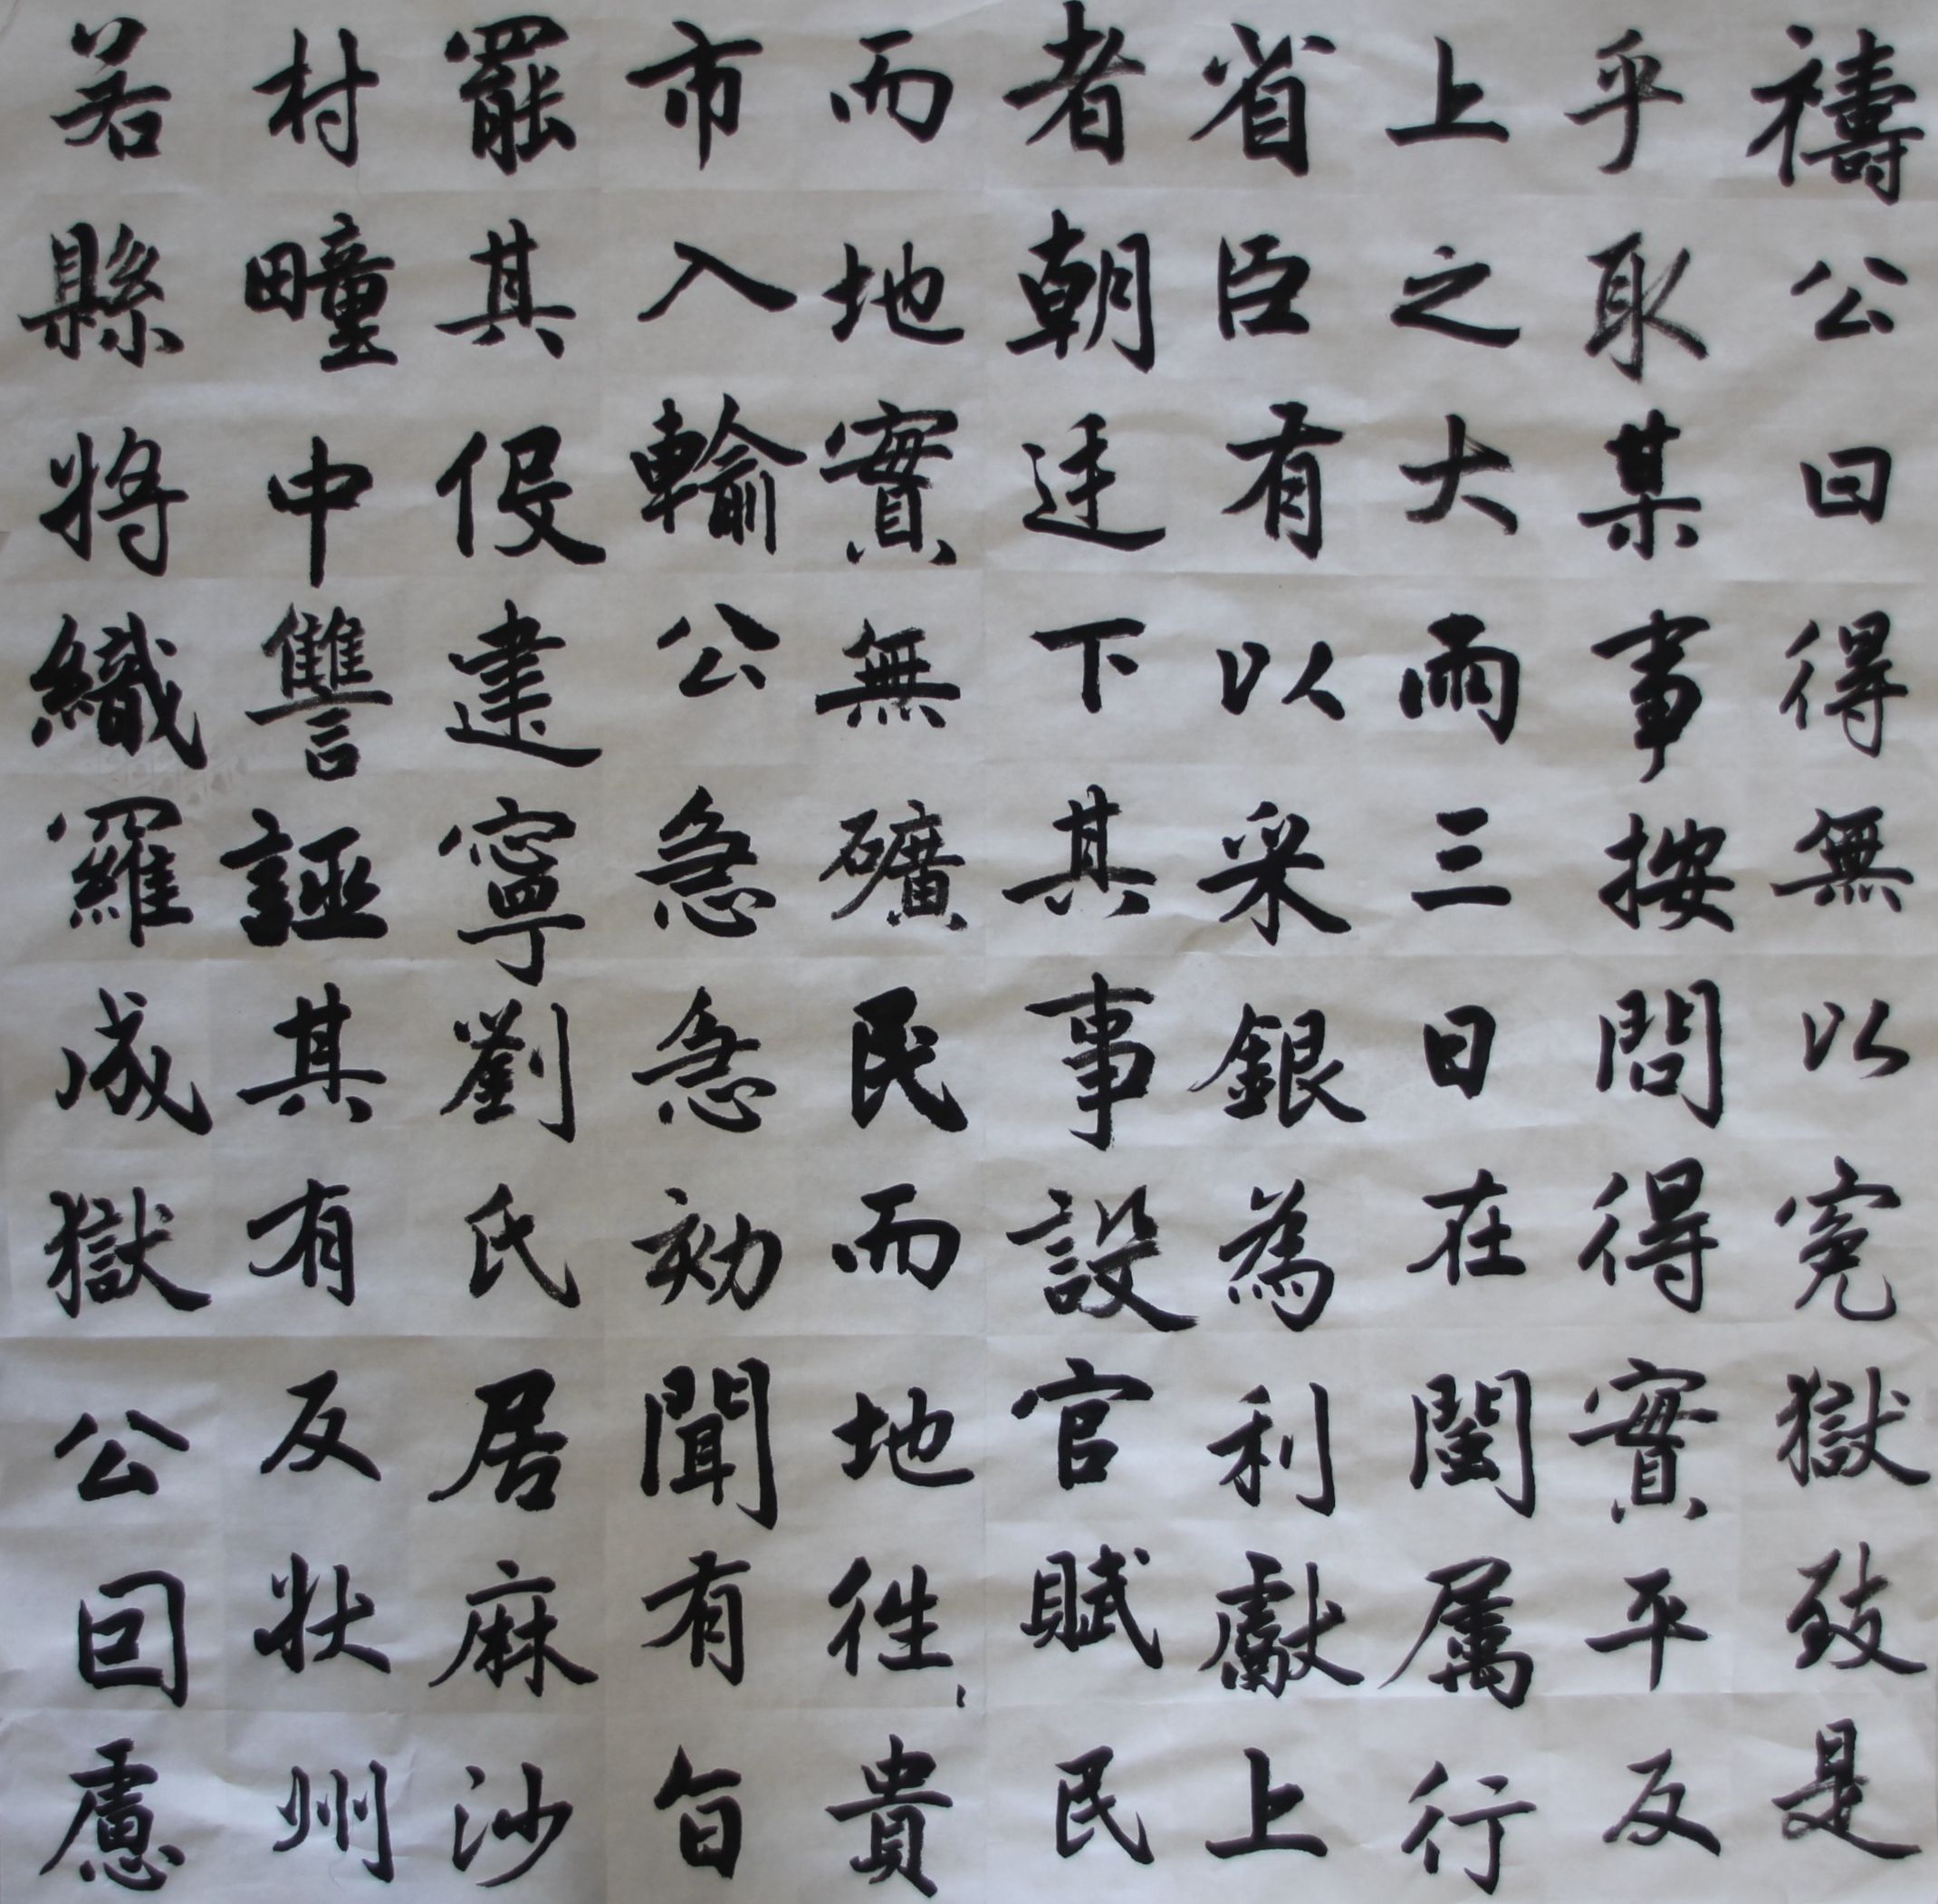 禱公曰得無以冤獄致是
乎取某事按問得實平反
上之大雨三日在閩属行
省臣有以采銀為利獻上
者朝廷下其事設官賦民
而地實無礦民而地徃貴
市入輸公急急効聞有旨
罷其伇建寧劉氏居麻沙
村疃中讐誣其有反狀州
若縣将織羅成獄公囙慮